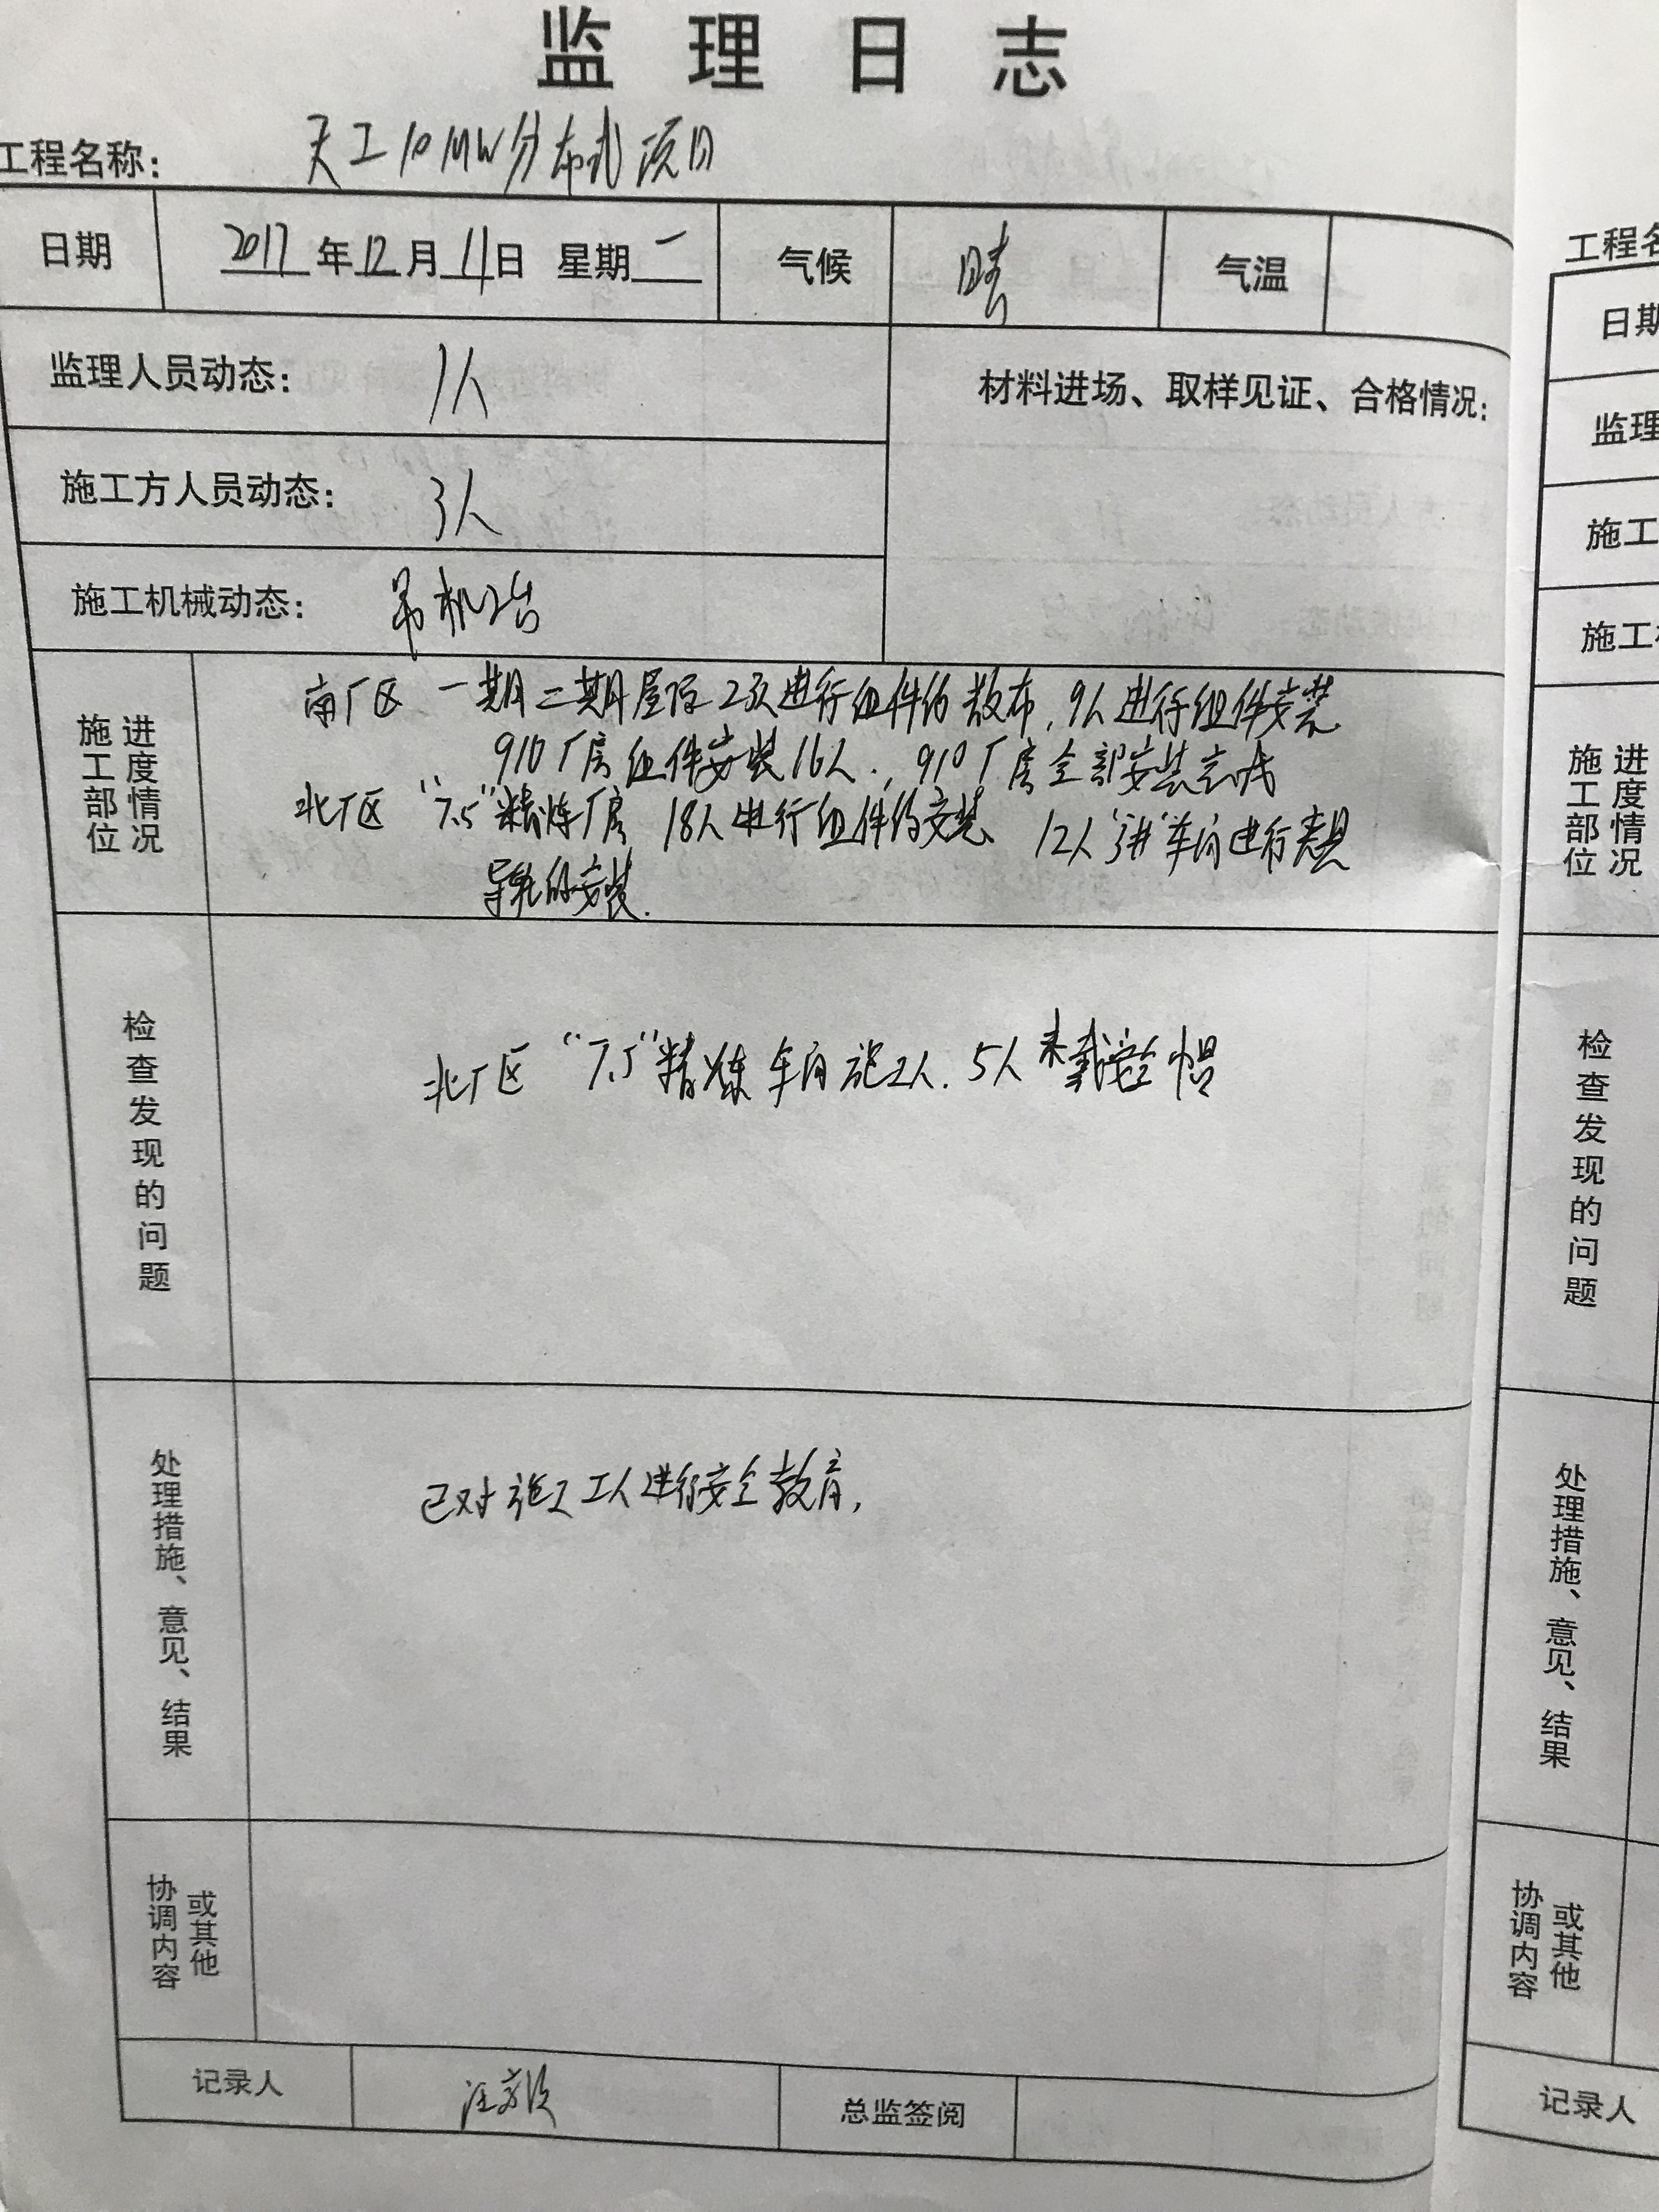 监理日志
工程名称: 天工10MW分布式项目
日期 2017年12月11日 星期一 气候 晴 气温
监理人员动态: 1人
材料进场、取样见证、合格情况:
施工方人员动态: 3人
施工机械动态: 吊机2台
施工部位 进度情况
南厂区 一期二期屋顶2顶进行组件的散布,9人进行组件安装
910厂房组件安装16人.,910厂房全部安装完成
北厂区 "7.5"精炼厂房 18人进行组件的安装、12人 车间进行夹具
导轨的安装.
检查发现的问题
北厂区 "7.5"精炼车间施工人.5人未戴安全帽
处理措施、意见、结果
已对施工工人进行安全教育,
协调内容 或其他
记录人 总监签阅
工程名
日期
监理
施工
施工
施工部位 进度情况
检查发现的问题
处理措施、意见、结果
协调内容 或其他
记录人